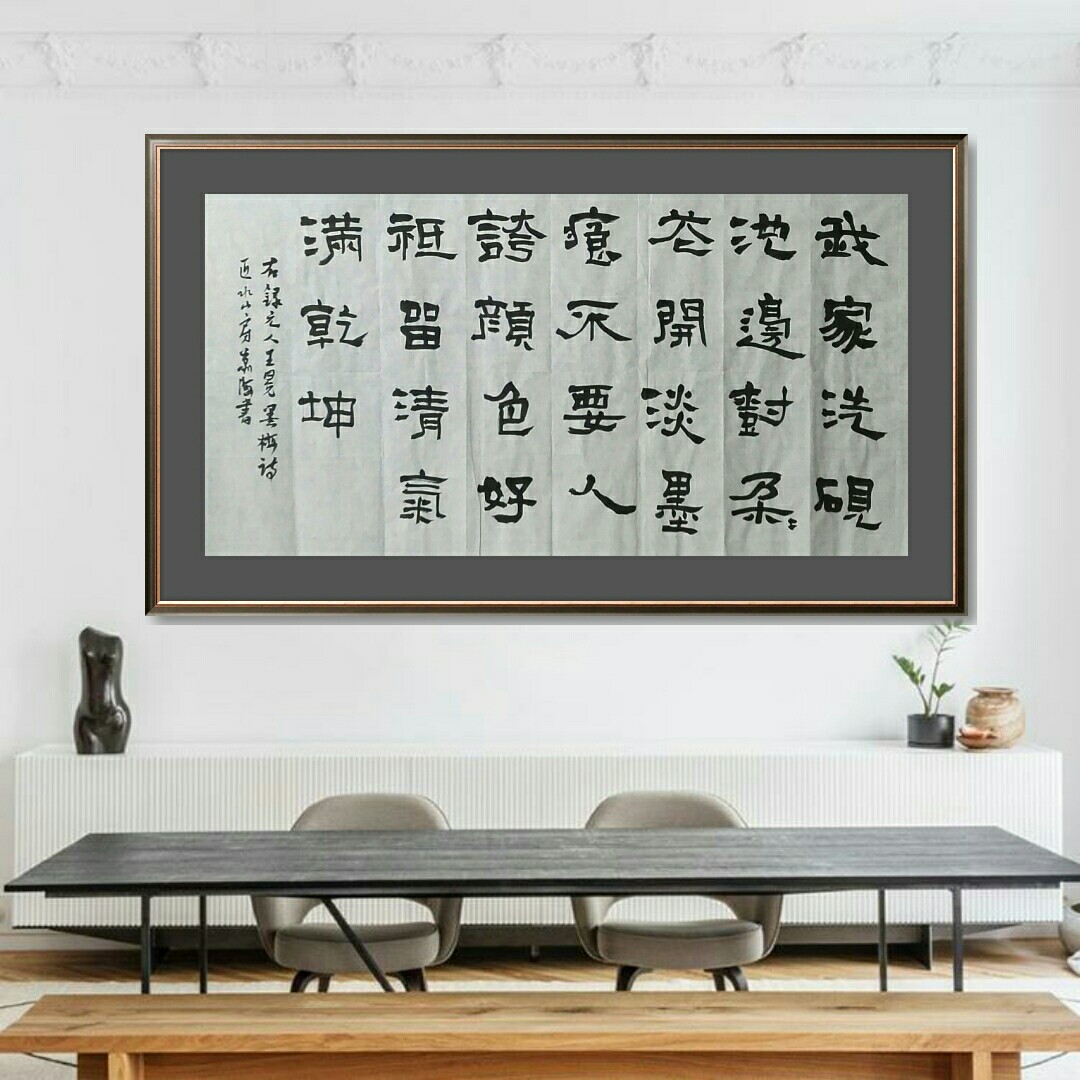 我家洗硯
池邊對朵々
花開淡墨
痕不要人
誇顏色好
祇留清氣
滿乾坤
右錄元人王冕墨梅詩
近水山房海書